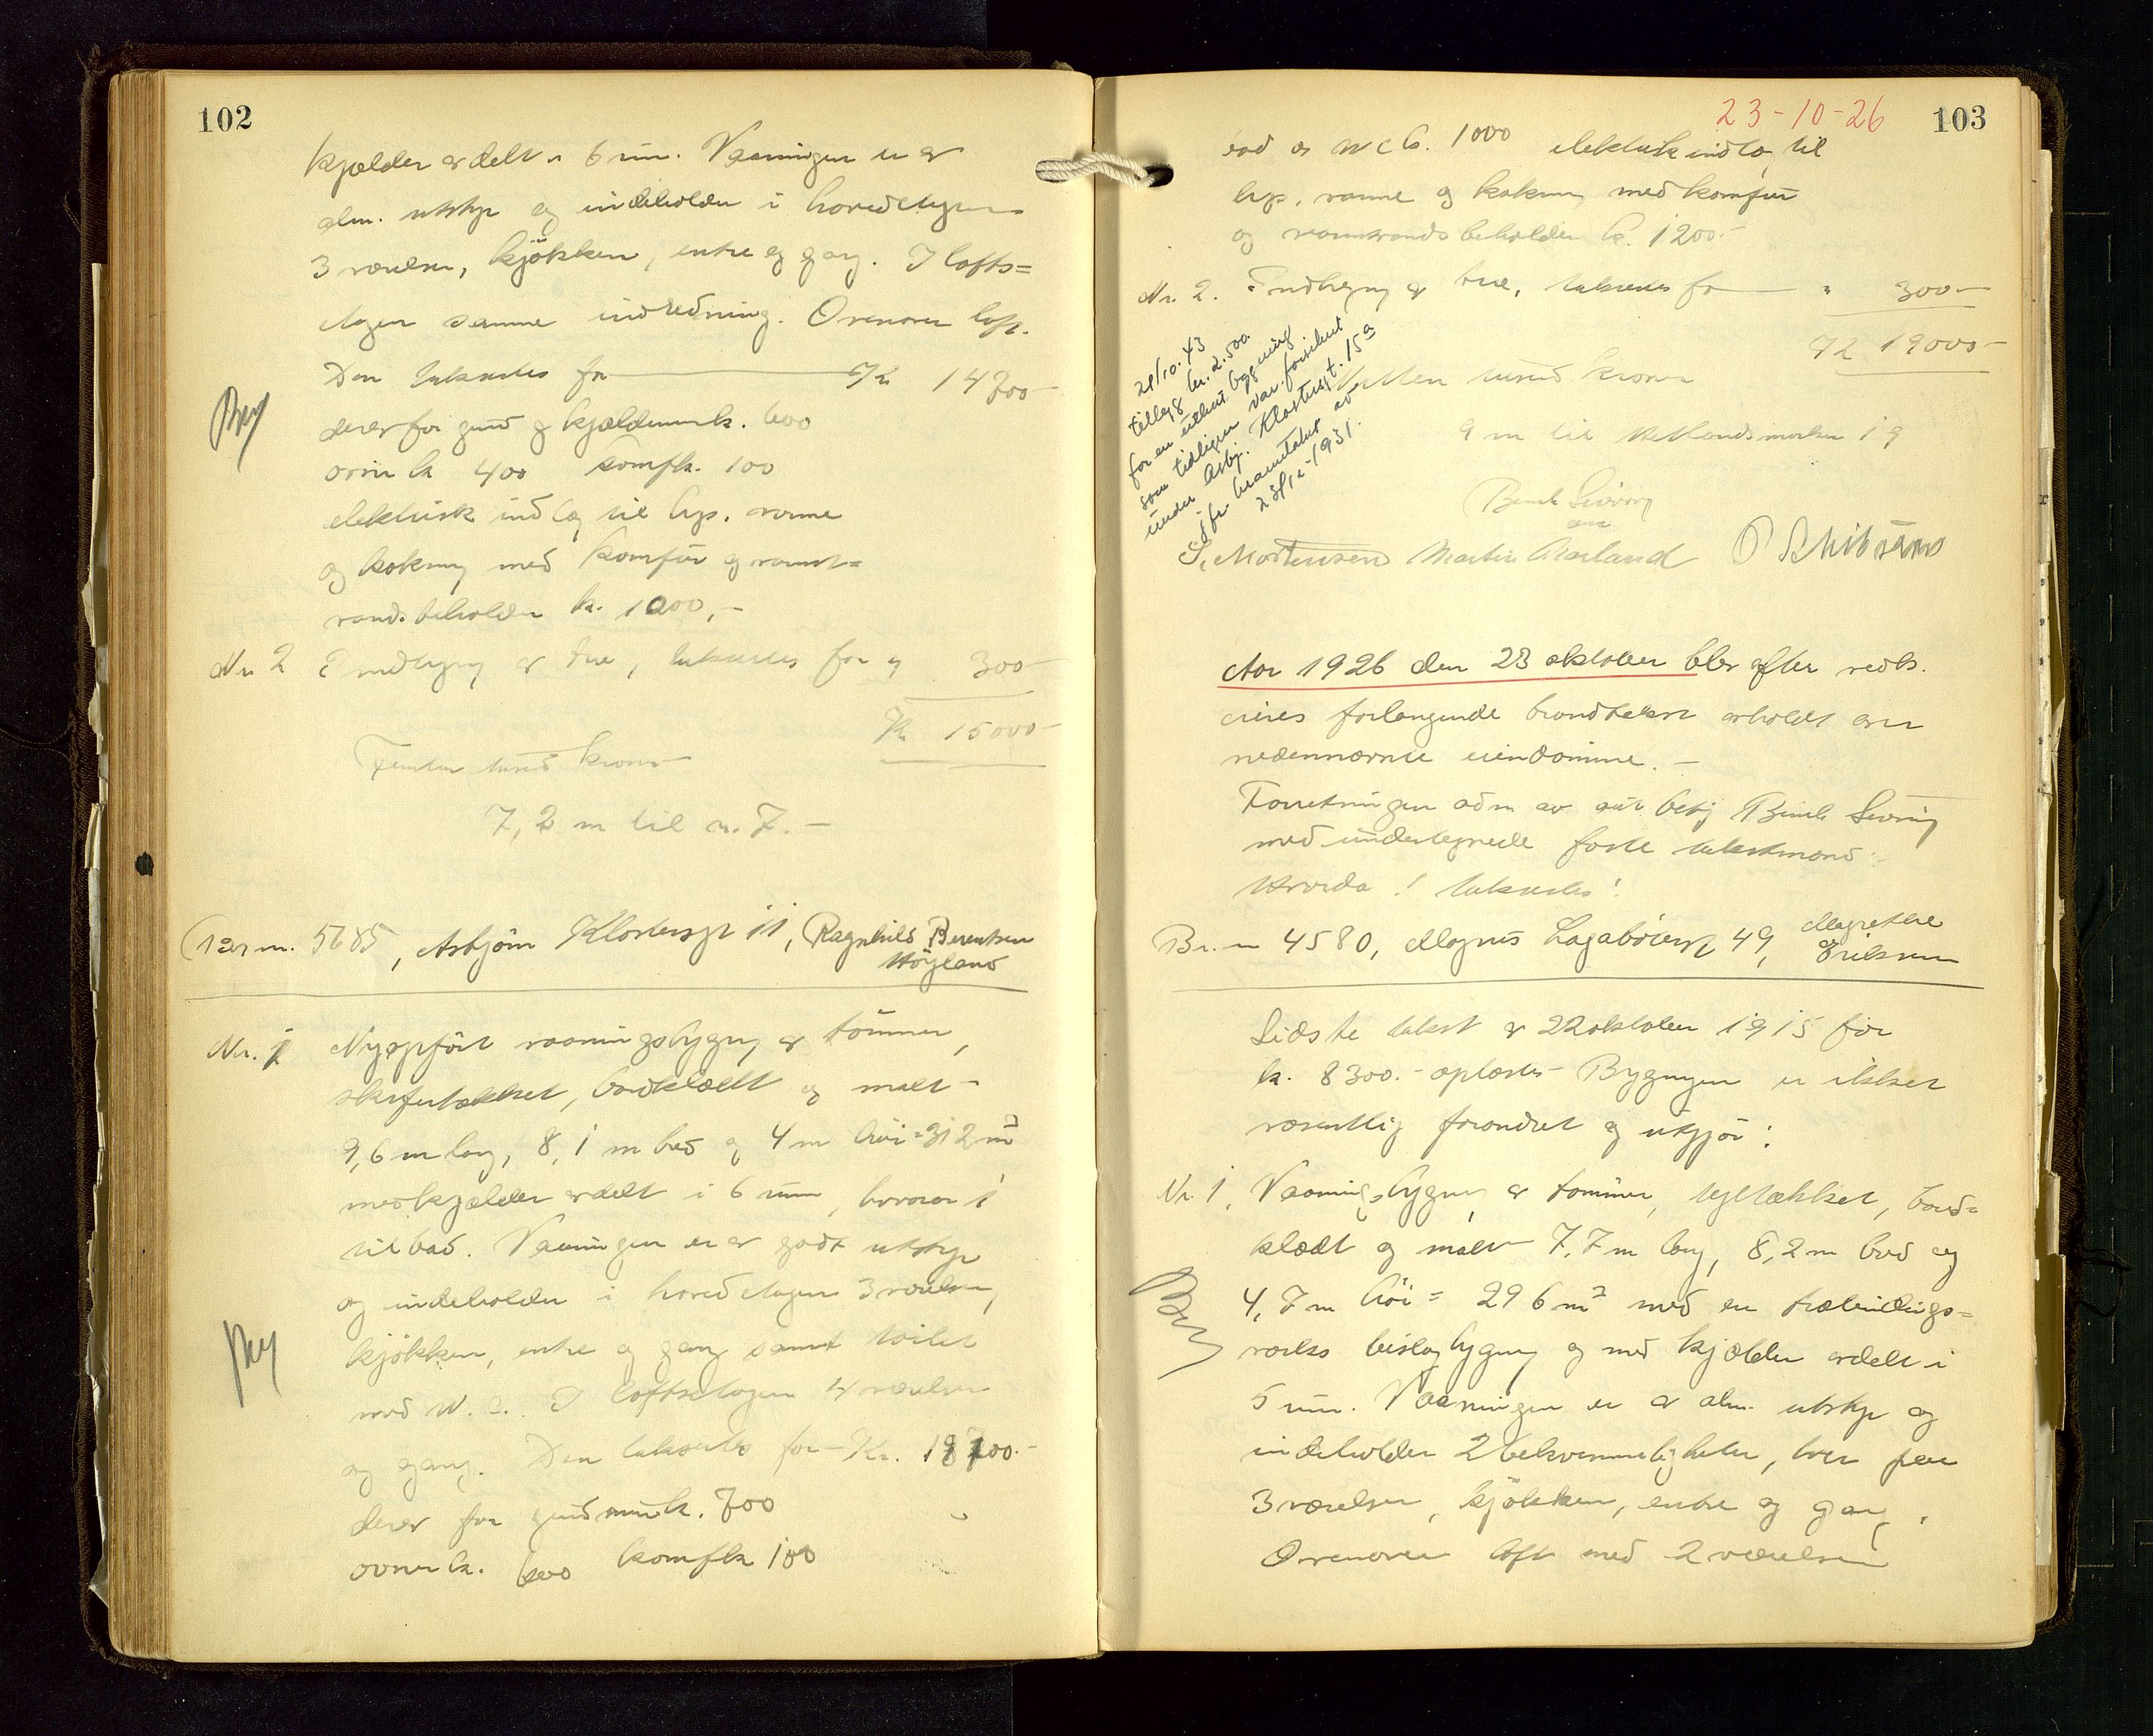 102
kjælder avdelt i 6 rum. Vaaningen er av
alm. utstyr og indeholder i hovedetagen
3 værelser, kjökken, entre og gang. I lofts=
etagen samme indredning. Ovenover loft.
Den takseres for Kr. 14700-
derav for grund og kjældermur k. 600
ovner k 400 komf k. 100
elektrisk indlæg til lys, varme
og kokning med komfur og varmt=
vandsbeholder k. 1000,-
Nr. 2 Indhegning av træ, takseres for " 300-
Kr. 15000-
Femten tusind kroner
7,2 m til n. 7. -
Br. nr. 5685, Asbjörn Klostersgt 11, Ragnhild Berentsen
Höyland
Nr. 1 Nyopfört vaaningsbygning av tömmer,
skifertækket, bordklædt og malt -
9,6 m lang, 8,1 m bred og 4 m höi = 312 m³
med kjælder avdelt i 6 rum, hvorav 1
til bad. Vaaningen er av godt utstyr
og indeholder i hovedetagen 3 værelser,
kjökken, entre og gang samt toilet
med W.C. I loftsetagen 4 værelser
og gang. Den takseres for - Kr. 18700.-
derav for grundmur k. 700
ovner k. 600 komf k 100
23-10-26 103
bad og W C k. 1000 elektrisk indlæg til
lys, varme og kokning med komfur
og varmtvandsbeholder k. 1200.-
Nr. 2. Indhegning av træ, takseres for " 300-
Kr 19000-
Nitten tusind kroner
9 m til Hetlandsmarken 19
21/10.43
tillegg kr. 2.500.
for en uthusbygning
som tidligere var forsikret
under Asbj. Klostersgt. 15a
Jfr. branntakst av
28/12-1931.
Bernh Sivering
S. Mortensen Martin Aarland
Aar 1926 den 23 oktober blev efter vedk.
eieres forlangende brandtakst avholdt over
nedennævnte eiendomme. -
Forretningen adm av aut. betj Bernh Sivering
med undertegnede faste takstmænd.
Hvorda! takseres!
Br. nr 4580, Magnus Lagabötersgt 49, Magrethe
Eriksen
Sidste takst av 22 oktober 1915 for
k. 8300.- oplæstes - Bygningen er ikke
væsentlig forandret og utgjör:
Nr. 1. Vaaningsbygning av tömmer, teglækket, bord=
klædt og malt 7,7 m lang, 8,2 m bred og
4,7 m höi = 296 m³ med en træbindings=
verks bislagbygning og med kjælder avdelt i
5 rum. Vaaningen er av alm. utstyr og
indeholder 2 bekvemmeligheter, hver paa
3 værelser, kjökken, entre og gang.
Ovenover loft med 2 værelser